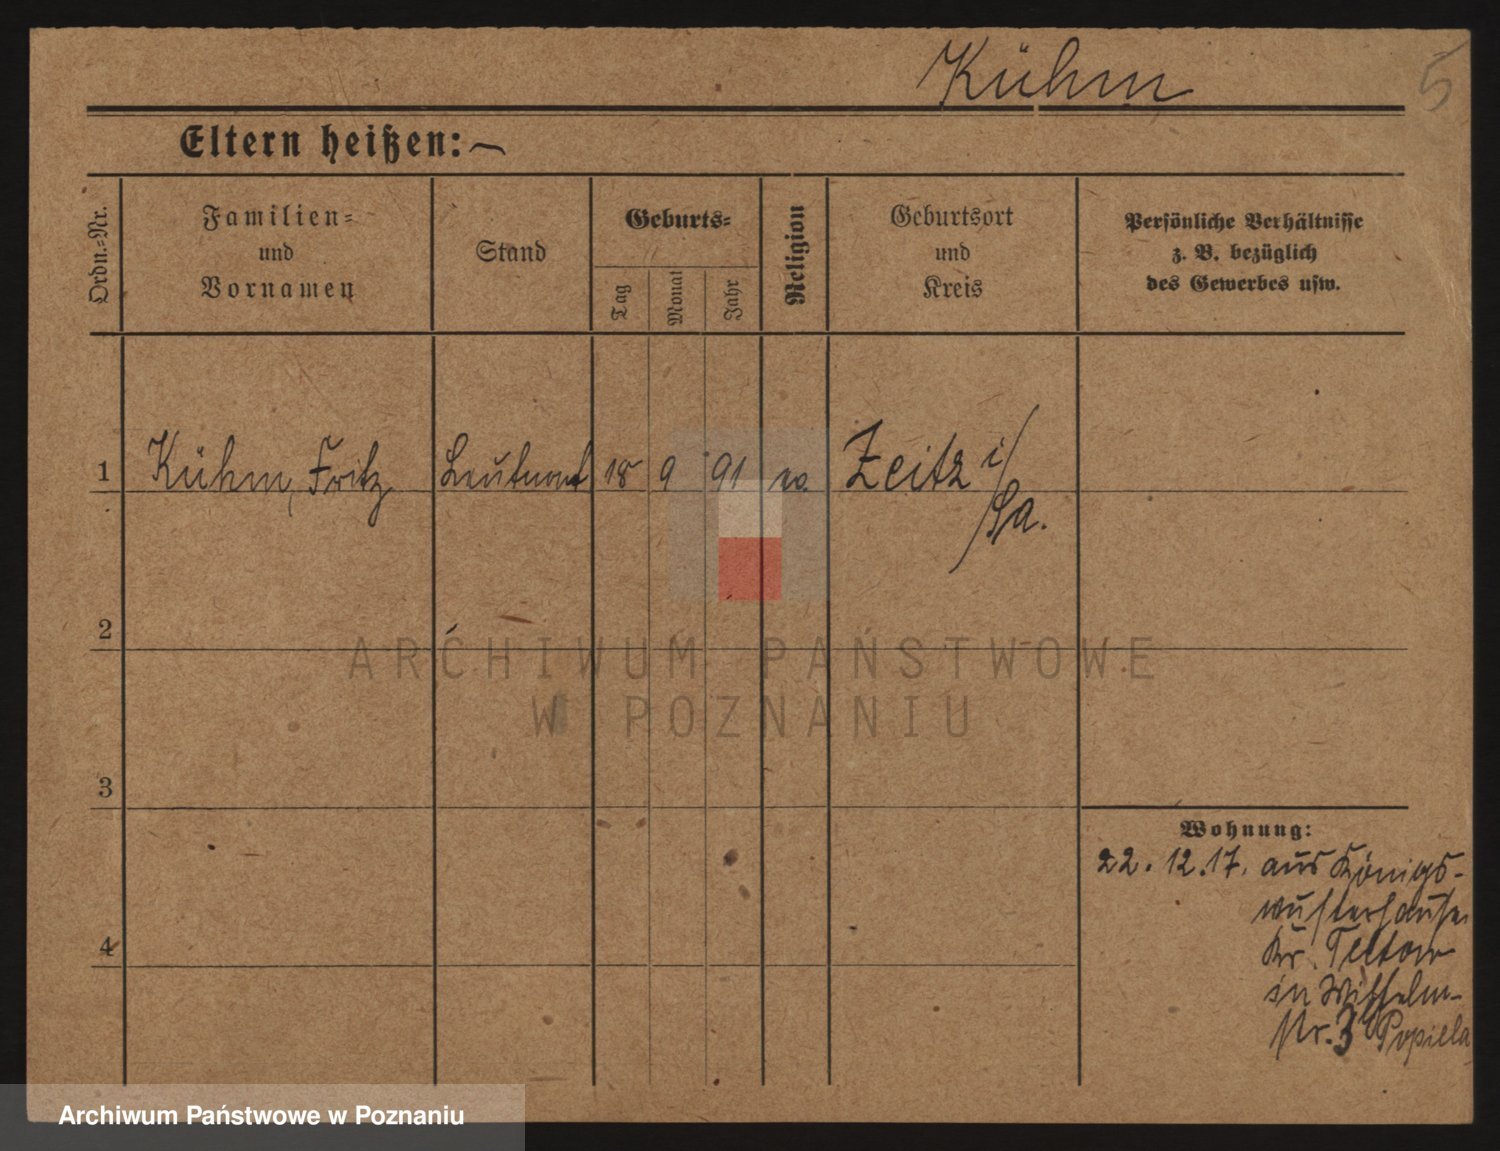 Kühm
5
Eltern heißen:
Ordn.=Nr.
Familien=
und
Vornamen
Stand
Geburts=
Tag
Monat
Jahr
Religion
Geburtsort
und
Kreis
Persönliche Verhältnisse
z. B. bezüglich
des Gewerbes usw.
1
Kühm, Fritz
Leutnant
18
9
91
ev.
Zeitz i/
Sa.
2
ARCHIWUM PAŃSTWOWE
W POZNANIU
3
Wohnung:
22. 12. 17. aus Königs-
wusterhausen
Kr. Teltow
in Wilhelm-
str. 3
4
Archiwum Państwowe w Poznaniu